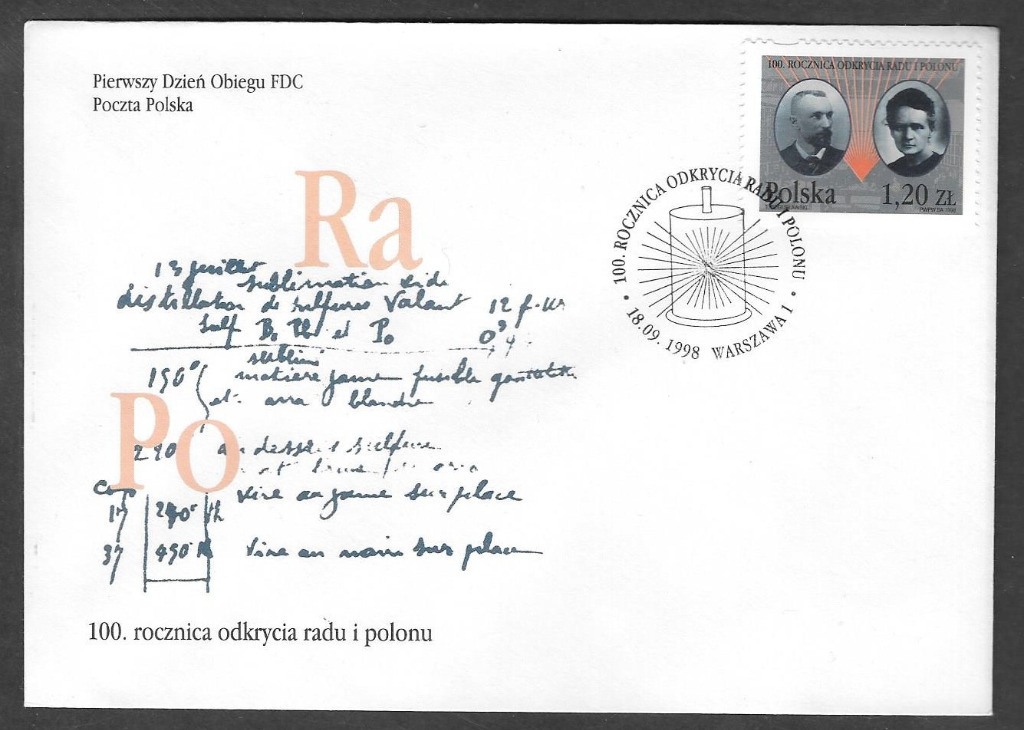 Pierwszy Dzień Obiegu FDC
Poczta Polska
100. ROCZNICA ODKRYCIA RADU I POLONU
Polska 1,20 ZŁ
100. ROCZNICA ODKRYCIA RADU I POLONU
18.09.1998 WARSZAWA 1
Ra
Po
13 juillet sublimation
distillation de sulfures
Sulf B. et Po
sublimé
190° matière jaune fusible
et blanche
sulfure
vire au jaune sur place
37 450°
vire au noir sur place
100. rocznica odkrycia radu i polonu